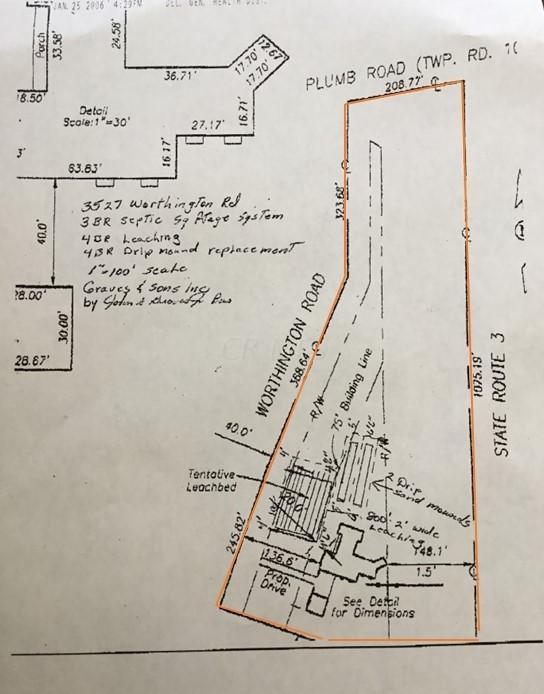 JAN 25 2006 4:29PM DEL. GEN. HEALTH DIST.
Porch
33.58'
24.58'
36.71'
17.70'
12.67'
17.70'
PLUMB ROAD (TWP. RD. 1(
208.77'
18.50'
Detail
Scale:1"=30'
16.71'
27.17'
16.17'
3'
63.83'
40.0'
3527 Worthington Rd
3BR Septic
System
4BR Leaching
4BR Drip mound replacement
1"=100' scale
Graves & Sons Inc
by John
28.00'
30.00'
28.67'
323.68'
WORTHINGTON ROAD
368.64'
R/W
75' Building Line
R/W
1075.19'
STATE ROUTE 3
40.0'
Tentative
Leachbed
2 Drip
sand mounds
800' 2' wide
Leaching
245.82'
136.6'
Prop.
Drive
148.1'
1.5'
See Detail
for Dimensions